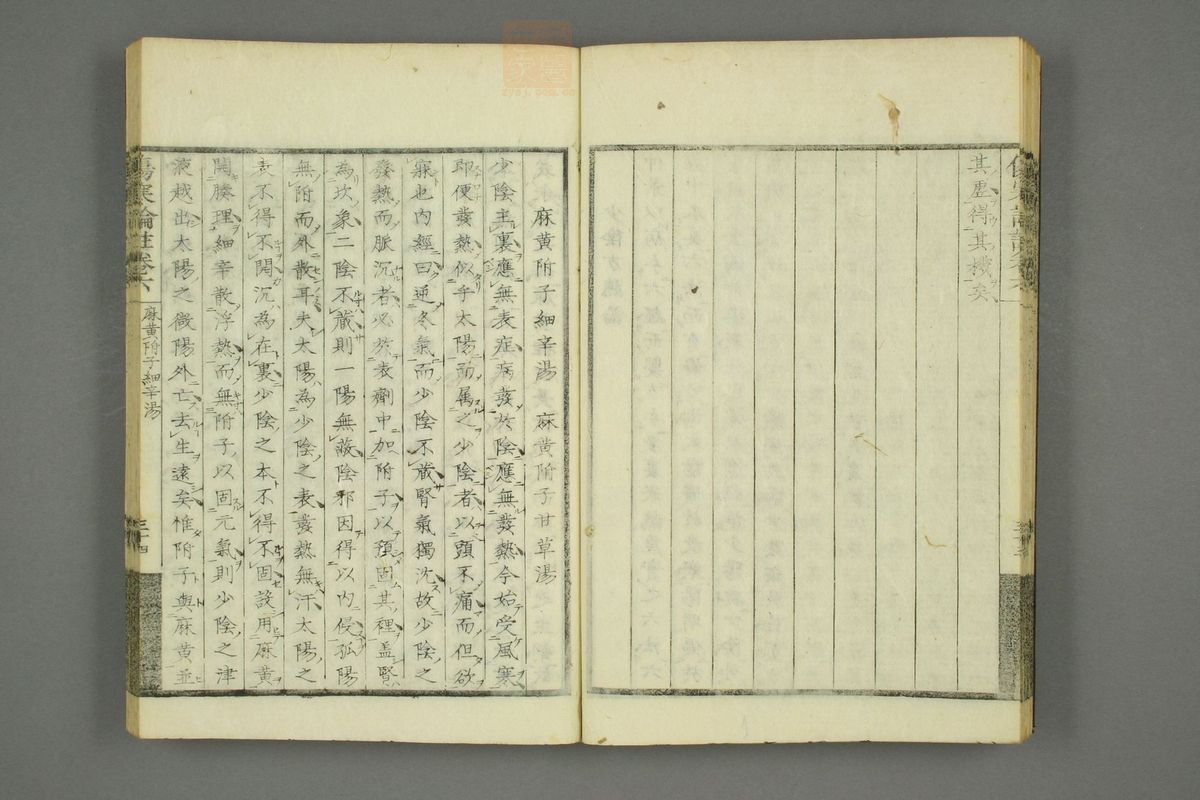 其虛得其機矣
麻黄附子細辛湯　麻黄附子甘草湯
少陰主裏應無表症病發於陰應無發熱今始受風寒
即便發熱似乎太陽而属之少陰者以頭不痛而但欲
寐也内經曰逆冬氣而少陰不藏腎氣獨沈故少陰之
發熱而脈沉者必於表劑中加附子以預固其裡盖腎
為坎象二陰不藏則一陽無蔽陰邪因得以内侵孤陽
無附而外散耳夫太陽為少陰之表發熱無汗太陽之
表不得不開沉為在裏少陰之本不得不固設用麻黄
開腠理細辛散浮熱而無附子以固元氣則少陰之津
液越出太陽之微陽外亡去生遠矣惟附子與麻黄並
傷寒論註卷六
麻黄附子細辛湯
三十四